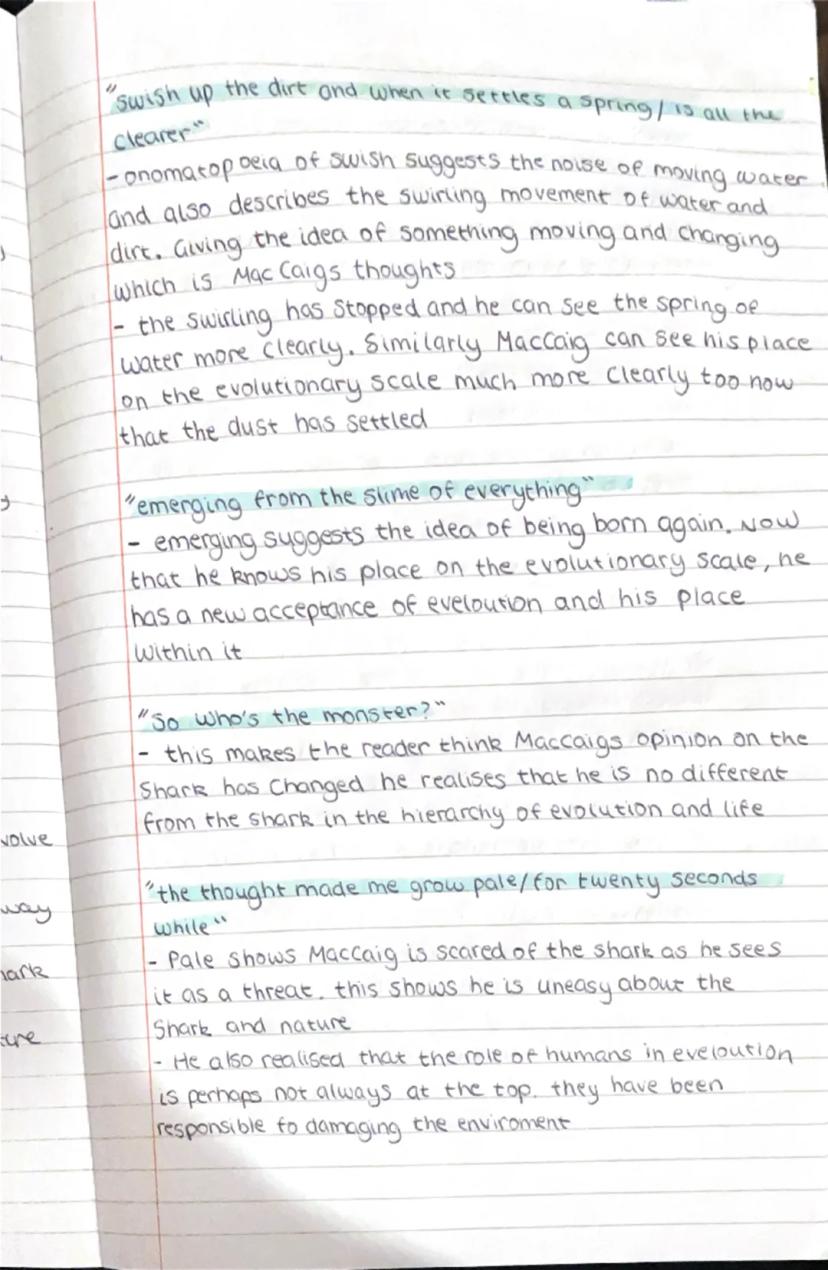 "swish up the dirt and when it settles a spring/ is all the
clearer"
- onomatopoeia of swish suggests the noise of moving water
and also describes the swirling movement of water and
dirt. Giving the idea of something moving and changing
which is MacCaigs thoughts
- the swirling has stopped and he can see the spring of
water more clearly. Similarly MacCaig can see his place
on the evolutionary scale much more clearly too now
that the dust has settled
"emerging from the slime of everything"
- emerging suggests the idea of being born again. Now
that he knows his place on the evolutionary scale, he
has a new acceptance of eveloution and his place
within it
"So who's the monster?"
- this makes the reader think MacCaigs opinion on the
Shark has changed he realises that he is no different
from the shark in the hierarchy of evolution and life
volve
"the thought made me grow pale/for twenty seconds
way
while"
- Pale shows MacCaig is scared of the shark as he sees
hark
it as a threat. this shows he is uneasy about the
Shark and nature
ture
- He also realised that the role of humans in eveloution
is perhaps not always at the top. they have been
responsible fo damaging the enviroment